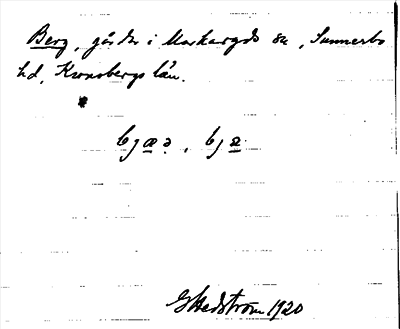 Berg, gårdar i Markaryds sn, Sunnerbo
hd, Kronobergs län.
*
bjæə, bjæ
G Hedström 1920